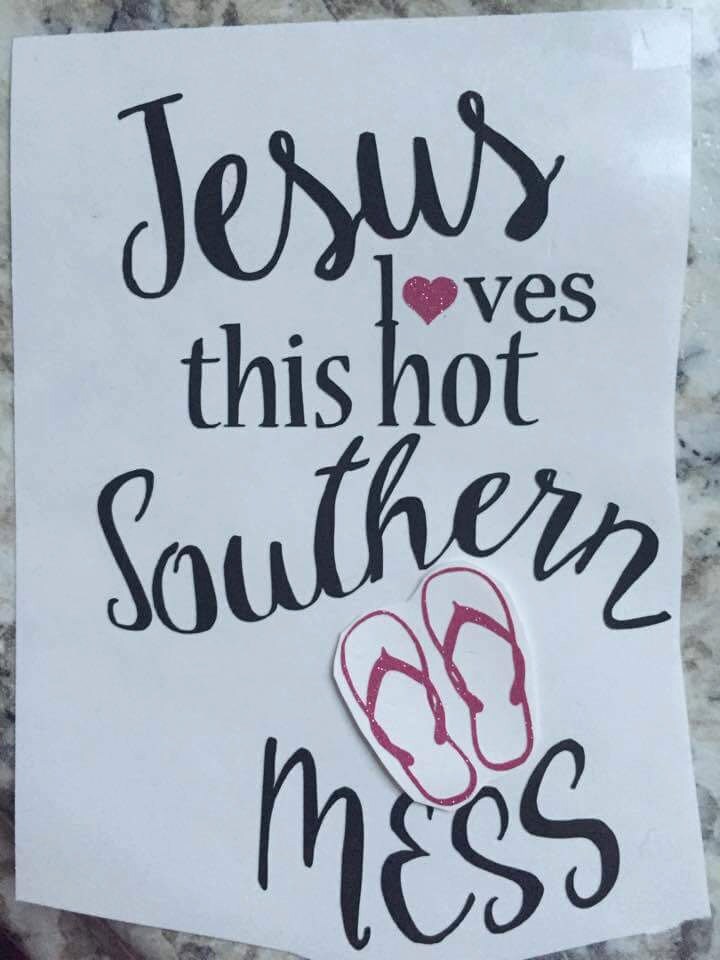 Jesus
loves
this hot
Southern
MESS